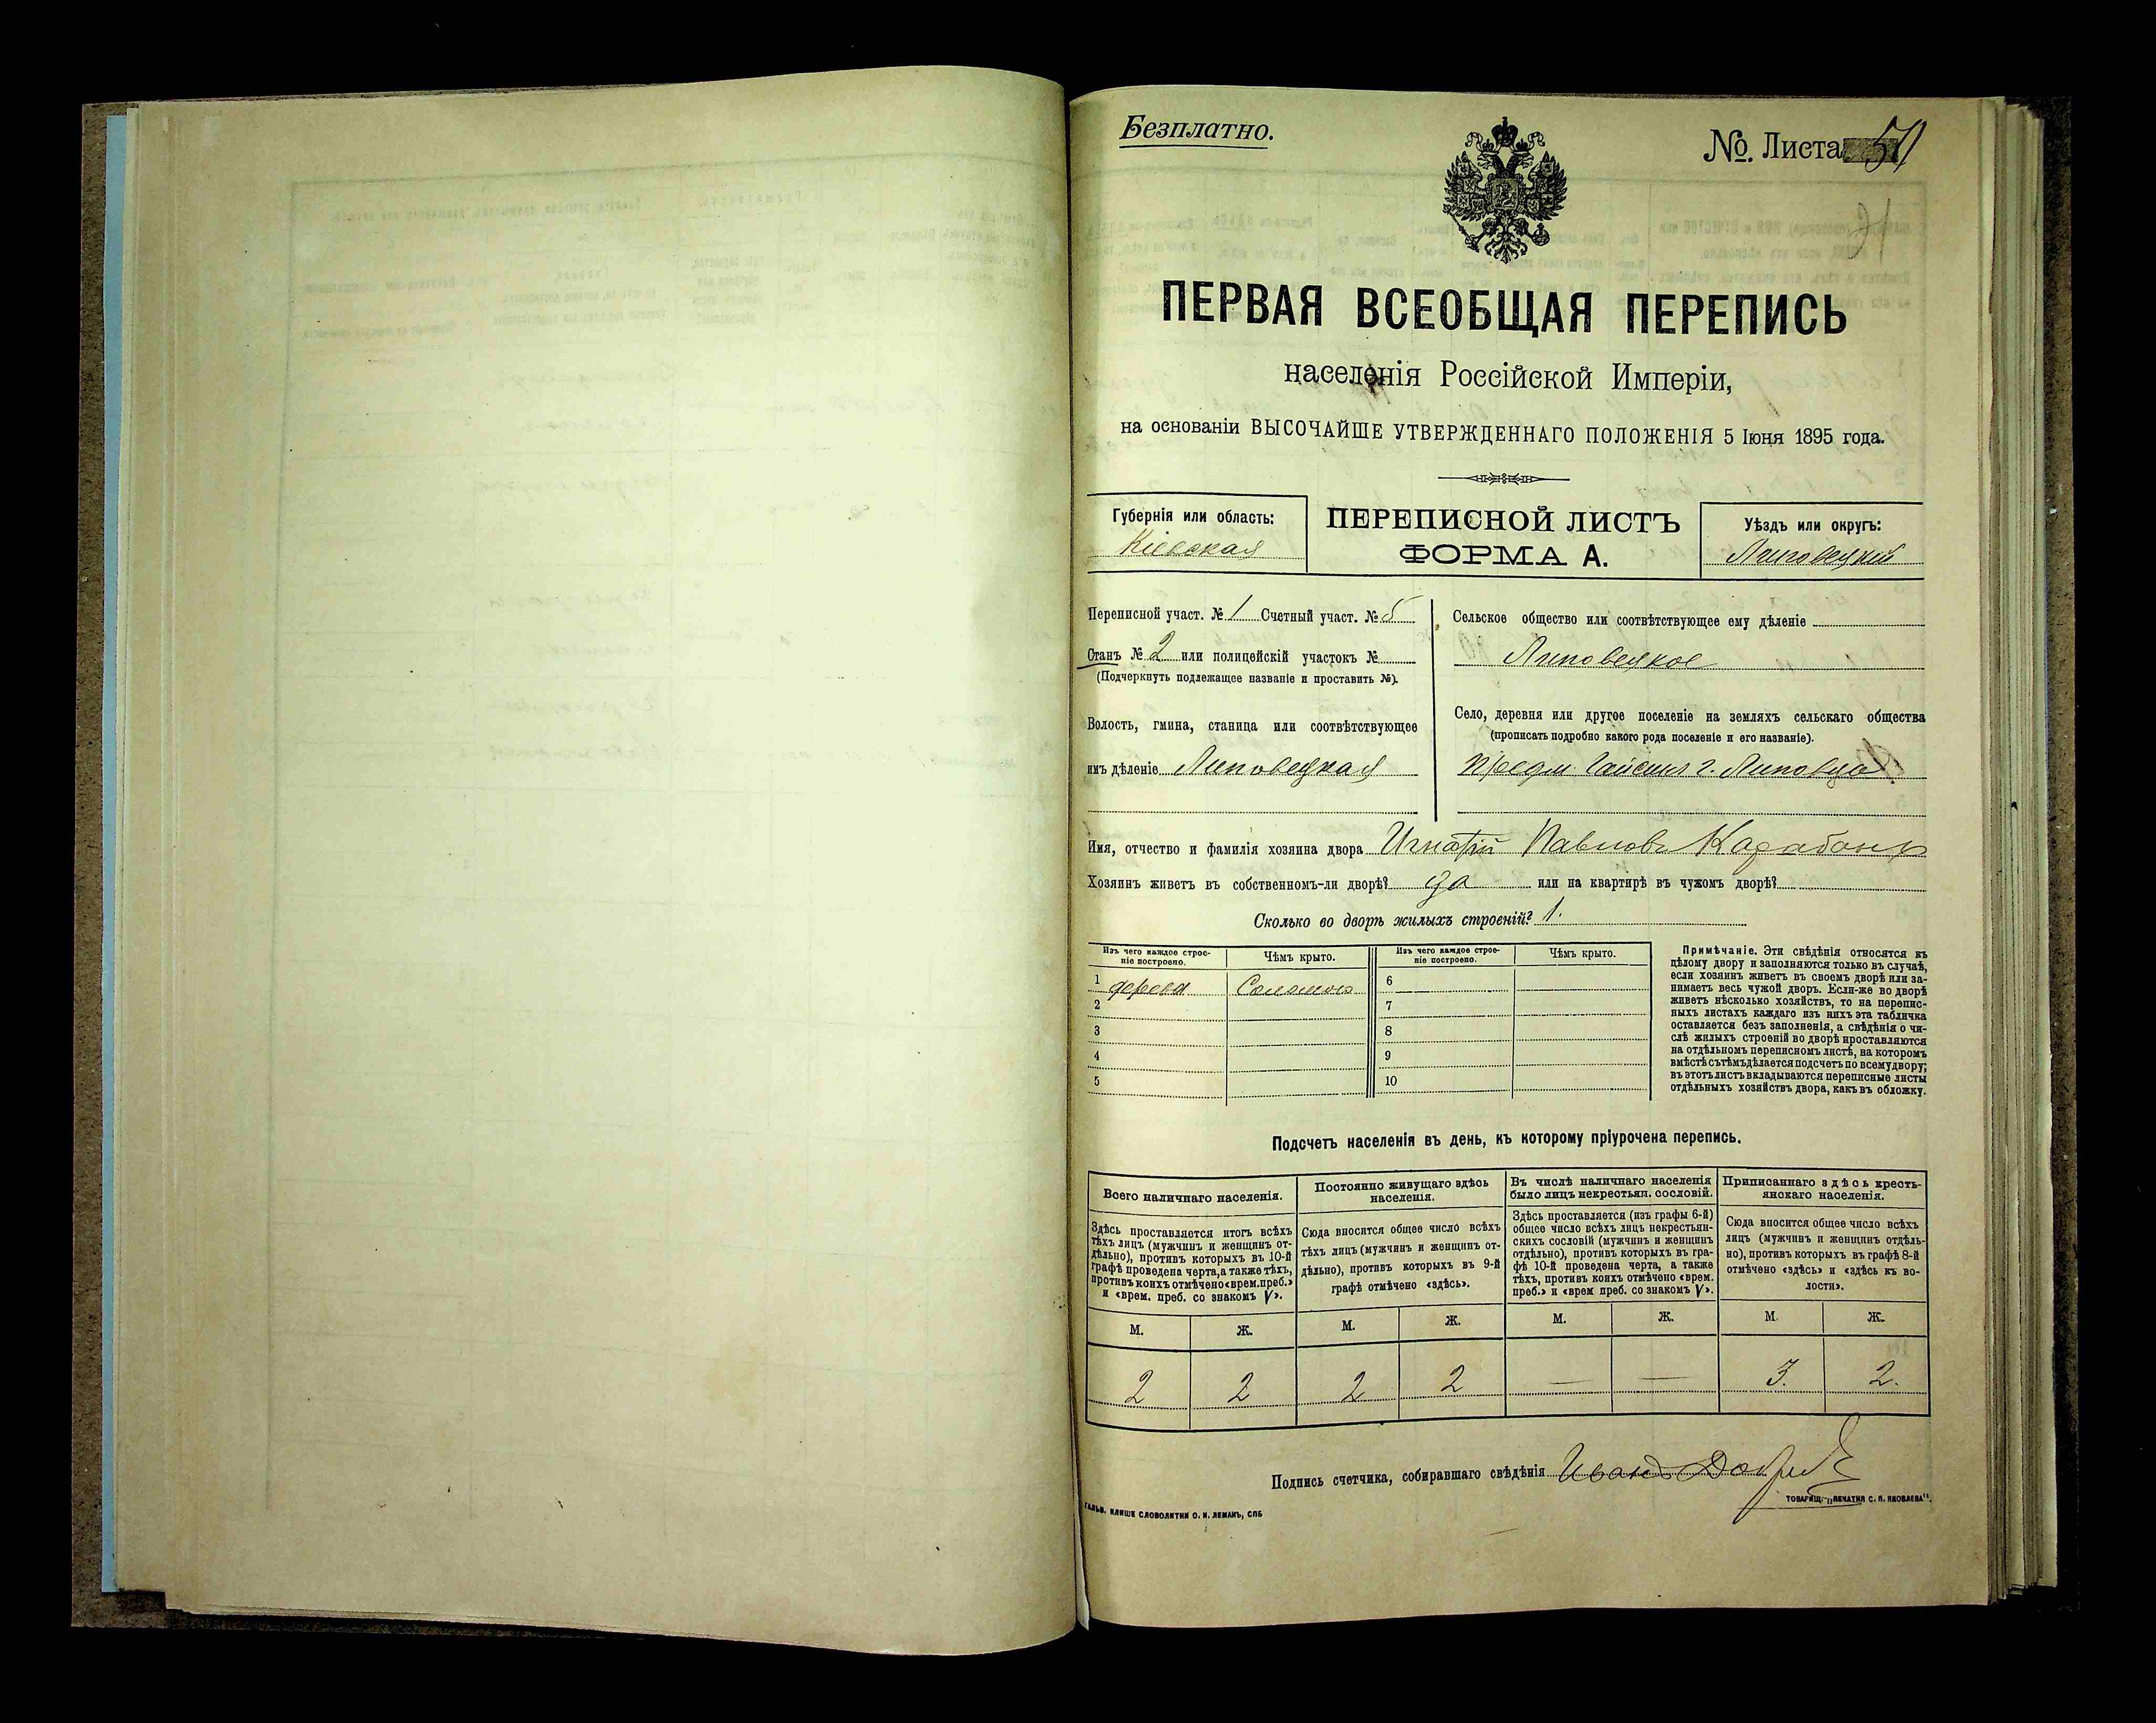 Безплатно.
№. Листа 51
ПЕРВАЯ ВСЕОБЩАЯ ПЕРЕПИСЬ
населенія Россійской Имперіи,
на основаніи ВЫСОЧАЙШЕ УТВЕРЖДЕННАГО ПОЛОЖЕНІЯ 5 Іюня 1895 года.
Губернія или область:
Кіевская
ПЕРЕПИСНОЙ ЛИСТЪ
ФОРМА А.
Уѣздъ или округъ:
Липовецкій
Переписной участ. № 1 Счетный участ. № 5
Станъ № 2 или полицейскій участокъ №
(Подчеркнуть подлежащее названіе и проставить №).
Волость, гмина, станица или соотвѣтствующее
имъ дѣленіе Липовецкая
Сельское общество или соотвѣтствующее ему дѣленіе
Липовецкое
Село, деревня или другое поселеніе на земляхъ сельскаго общества
(прописать подробно какого рода поселеніе и его названіе).
Предм. г. Липовца
Имя, отчество и фамилія хозяина двора Игнатій Павловъ Карабанъ
Хозяинъ живетъ въ собственномъ-ли дворѣ? да или на квартирѣ въ чужомъ дворѣ?
Сколько во дворѣ жилыхъ строеній? 1.
Изъ чего каждое строеніе построено.
Чѣмъ крыто.
Изъ чего каждое строеніе построено.
Чѣмъ крыто.
1 дерева Соломою 6
2 7
3 8
4 9
5 10
Примѣчаніе. Эти свѣдѣнія относятся къ
цѣлому двору и заполняются только въ случаѣ,
если хозяинъ живетъ въ своемъ дворѣ или за-
нимаетъ весь чужой дворъ. Если-же во дворѣ
живетъ нѣсколько хозяйствъ, то на перепис-
ныхъ листахъ каждаго изъ нихъ эта табличка
оставляется безъ заполненія, а свѣдѣнія о чи-
слѣ жилыхъ строеній во дворѣ проставляются
на отдѣльномъ переписномъ листѣ, на которомъ
вмѣстѣ съ тѣмъ дѣлается подсчетъ по всему двору;
въ этотъ листъ вкладываются переписные листы
отдѣльныхъ хозяйствъ двора, какъ въ обложку.
Подсчетъ населенія въ день, къ которому пріурочена перепись.
Всего наличнаго населенія.
Здѣсь проставляется итогъ всѣхъ
тѣхъ лицъ (мужчинъ и женщинъ от-
дѣльно), противъ которыхъ въ 10-й
графѣ проведена черта, а также тѣхъ,
противъ коихъ отмѣчено «врем. преб.»
и «врем. преб. со знакомъ V».
Постоянно живущаго здѣсь
населенія.
Сюда вносится общее число всѣхъ
тѣхъ лицъ (мужчинъ и женщинъ от-
дѣльно), противъ которыхъ въ 9-й
графѣ отмѣчено «здѣсь».
Въ числѣ наличнаго населенія
было лицъ некрестьян. сословій.
Здѣсь проставляется (изъ графы 6-й)
общее число всѣхъ лицъ некрестьян-
скихъ сословій (мужчинъ и женщинъ
отдѣльно), противъ которыхъ въ гра-
фѣ 10-й проведена черта, а также
тѣхъ, противъ коихъ отмѣчено «врем.
преб.» и «врем преб. со знакомъ V».
Приписаннаго здѣсь кресть-
янскаго населенія.
Сюда вносится общее число всѣхъ
лицъ (мужчинъ и женщинъ отдѣль-
но), противъ которыхъ въ графѣ 8-й
отмѣчено «здѣсь» и «здѣсь къ во-
лости».
М. Ж. М. Ж. М. Ж. М. Ж.
2 2 2 2 — — 3. 2.
Подпись счетчика, собиравшаго свѣдѣнія Иванъ
ГАЛЬВ. КЛИШЕ СЛОВОЛИТНИ О. И. ЛЕМАНЪ, СПБ
ТОВАРИЩ. „ПЕЧАТНЯ С. П. ЯКОВЛЕВА“.